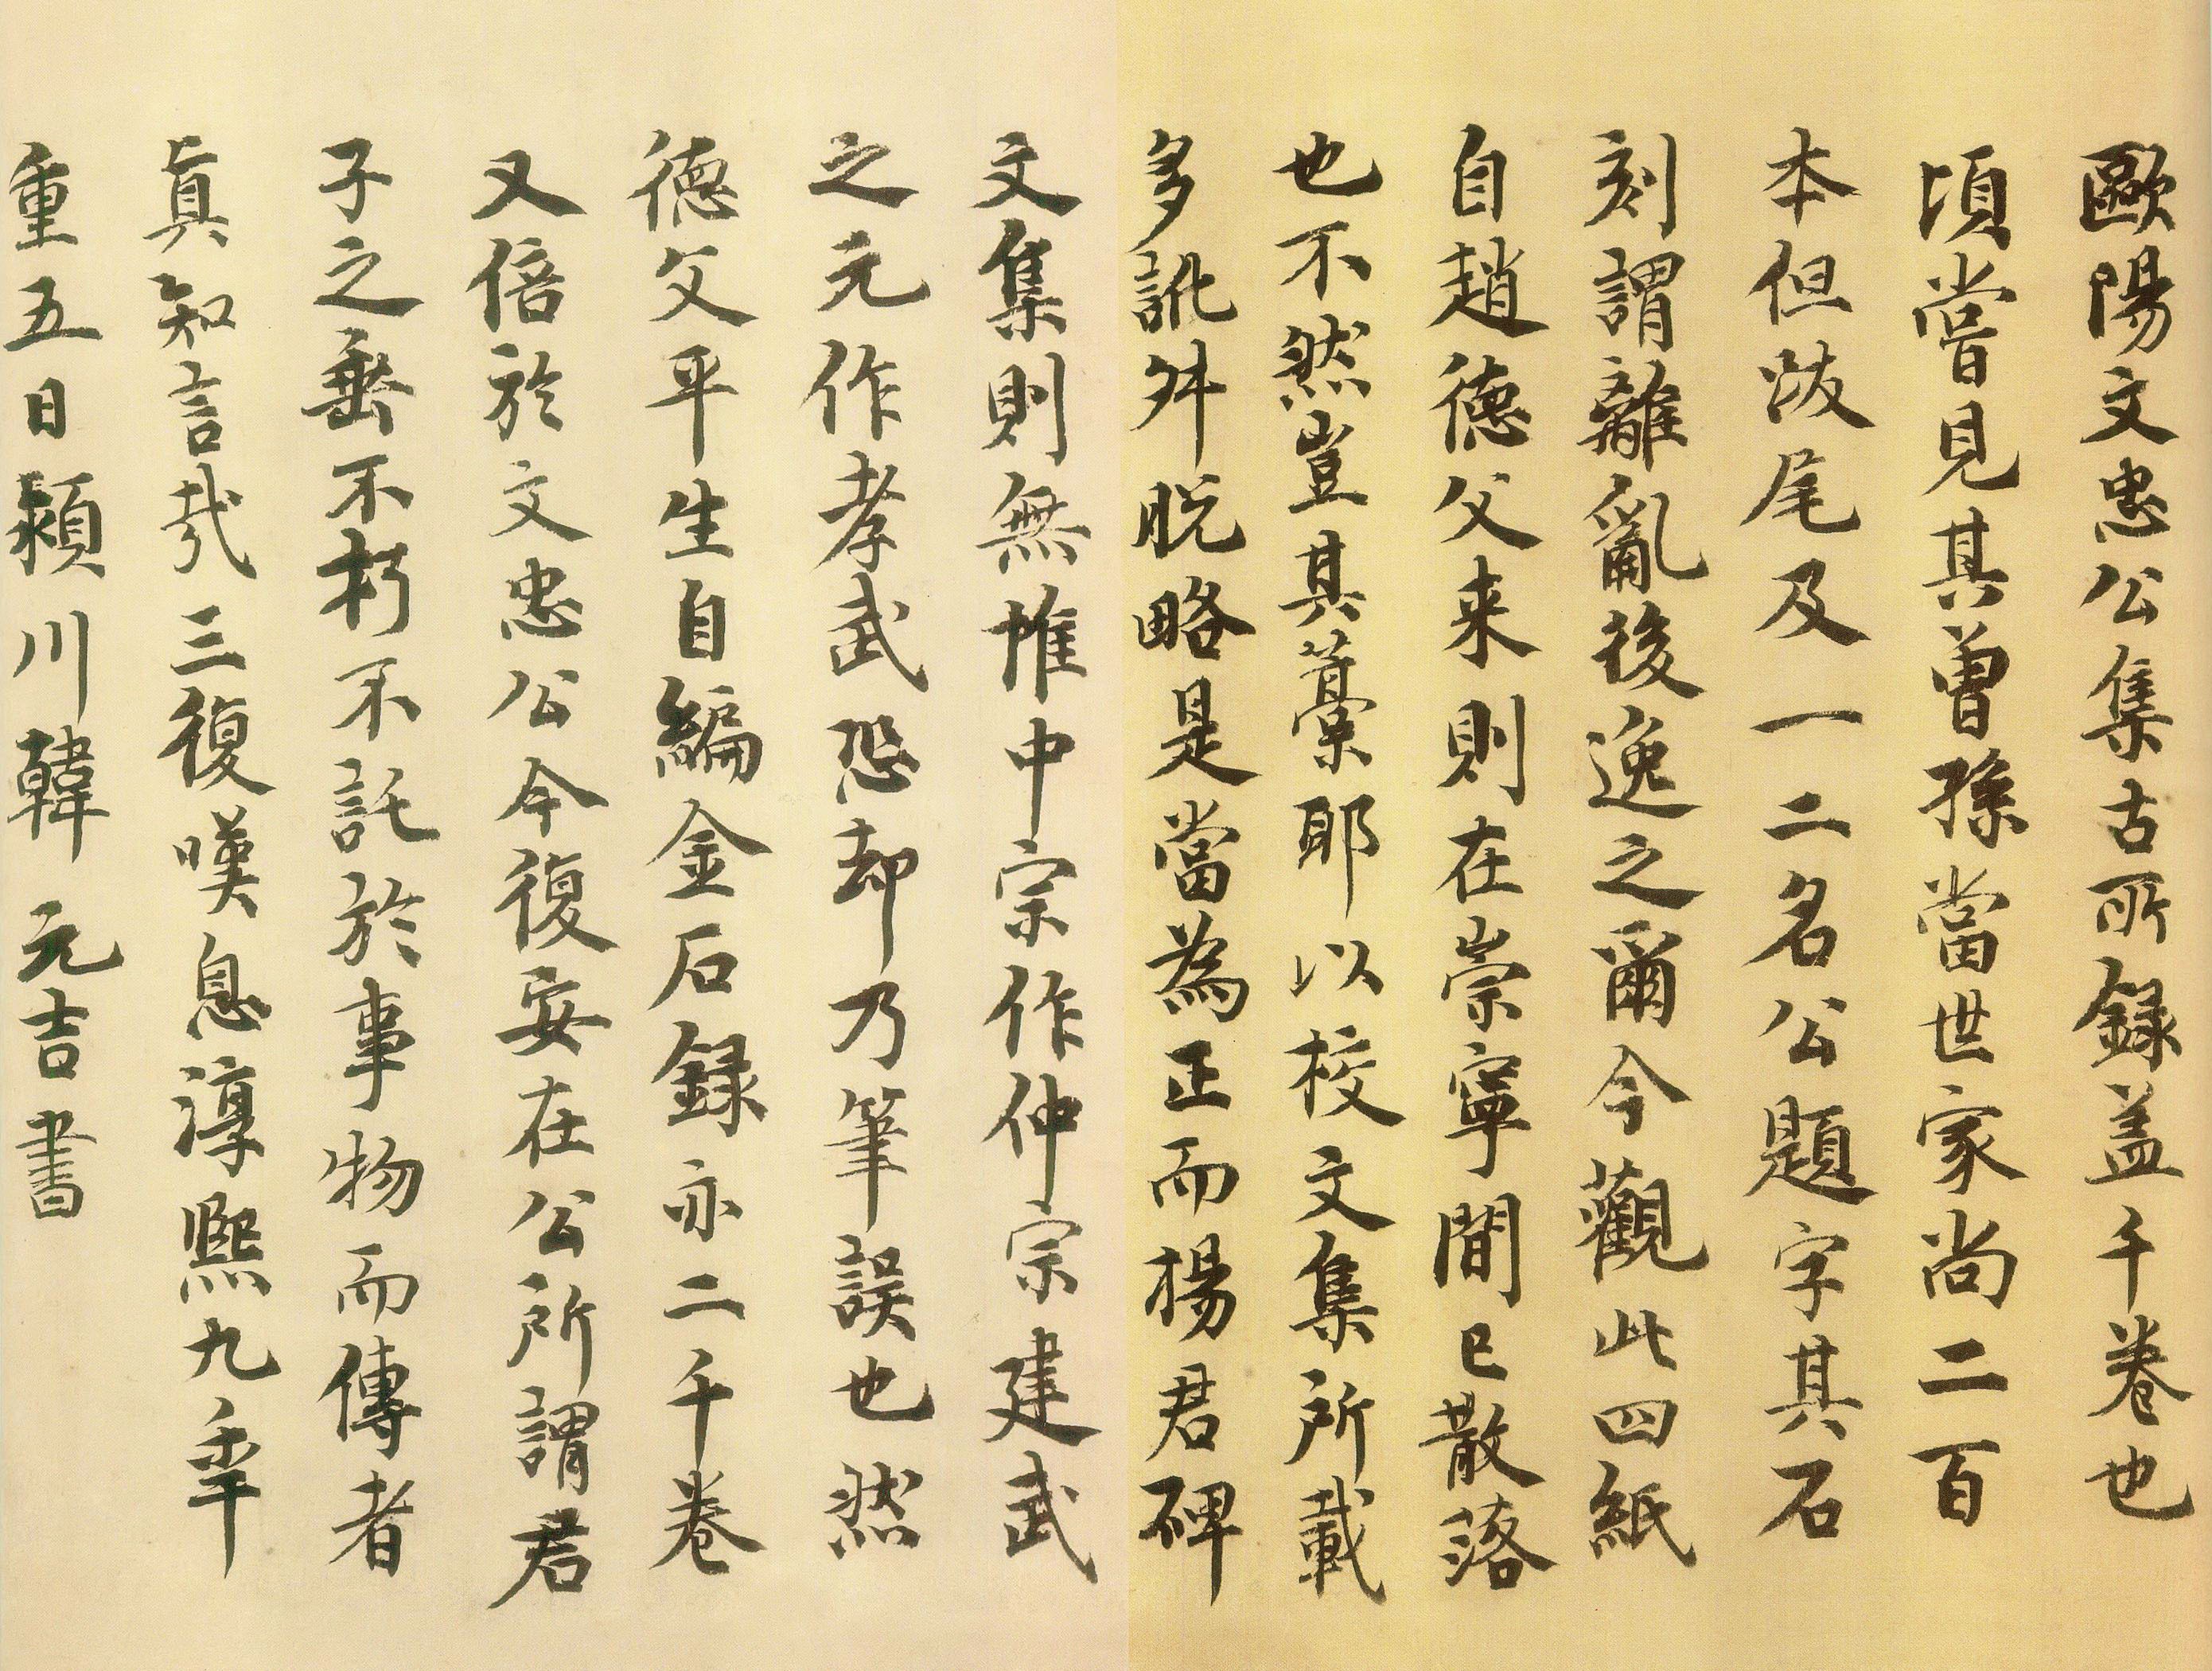 歐陽文忠公集古所録盖千卷也
頃嘗見其曾孫當世家尚二百
本但跋尾及一二名公題字其石
刻謂離亂後逸之爾今觀此四紙
自趙德父来則在崇寧間已散落
也不然豈其藁耶以校文集所載
多訛舛脱略是當為正而楊君碑
文集則無惟中宗作仲宗建武
之元作孝武恐却乃筆誤也然
德父平生自編金石録亦二千卷
又倍於文忠公今復安在公所謂君
子之垂不朽不託於事物而傳者
真知言哉三復嘆息淳熙九年
重五日潁川韓元吉書